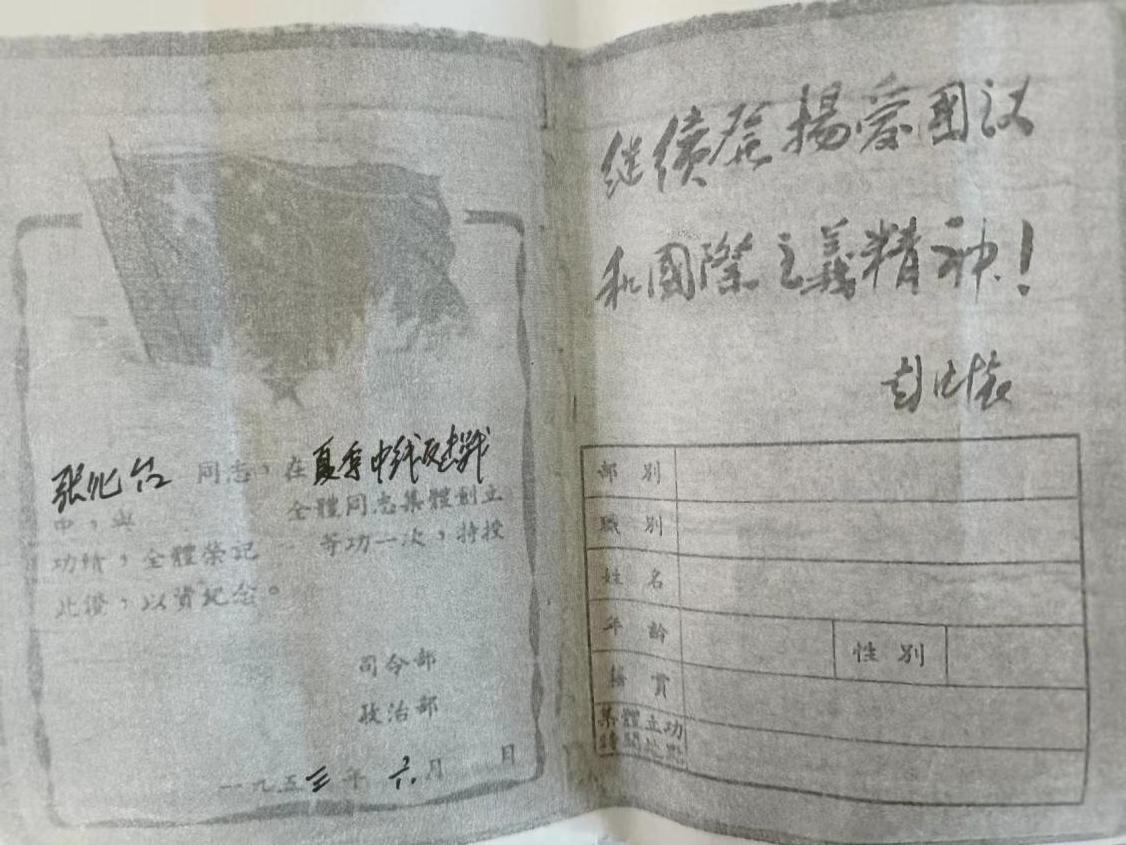 张兆台 同志，在夏季中线反击战
中，與 全體同志集體創立
功績，全體榮記 等功一次，特授
此證，以資紀念。
司令部
政治部
一九五三年六月 日
继續发揚愛國议
和國際主義精神！
彭德怀
部別
職別
姓名
年齡 性別
籍貫
集體立功
時間地點